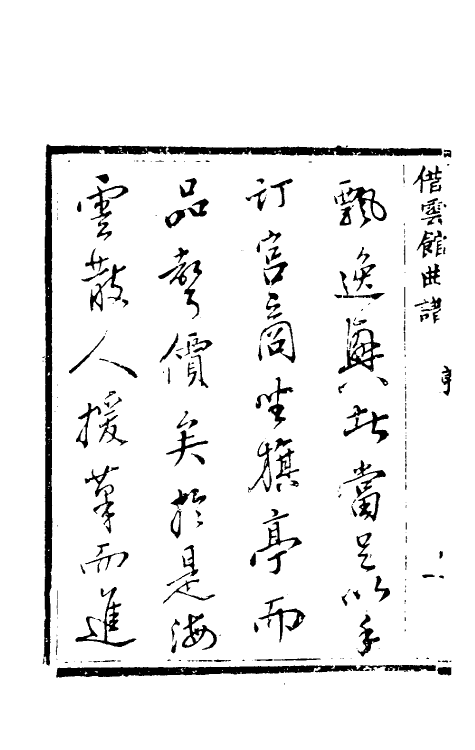 借雲館曲譜
序
一
飄逸興此當足以手
訂宮商坐旗亭而
品聲價矣於是海
雲散人援筆而進